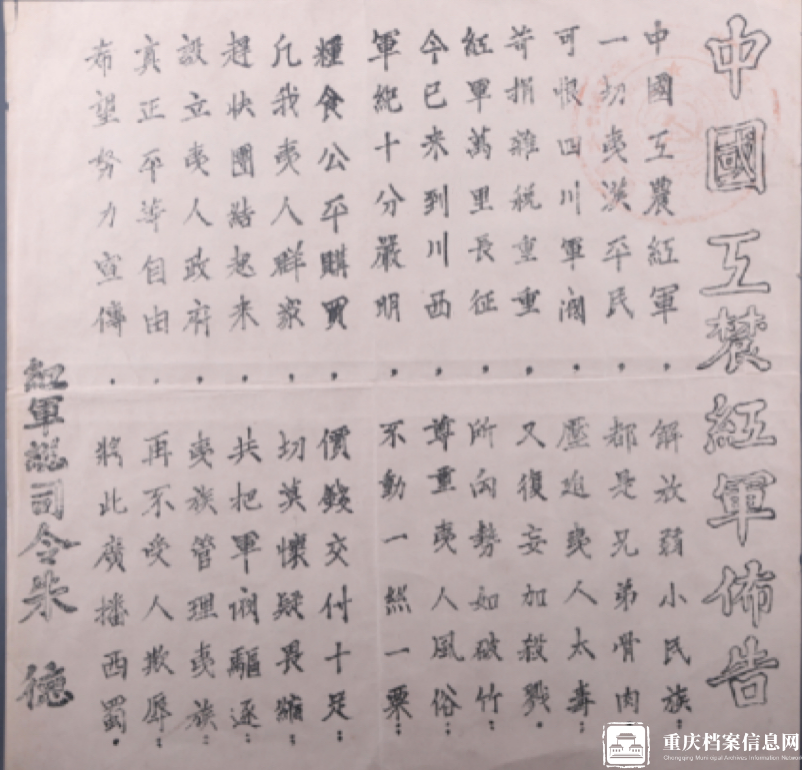 中國工農紅軍佈告
中國工農紅軍．解放弱小民族：
一切夷漢平民．都是兄弟骨肉：
可恨四川軍閥．壓迫夷人太毒：
苛捐雜稅重重．又復妄加殺戮．
紅軍萬里長征．所向勢如破竹：
今已來到川西．尊重夷人風俗：
軍紀十分嚴明．不動一絲一粟：
糧食公平購買．價錢交付十足：
凡我夷人群眾．切莫懷疑畏縮：
趕快團結起來．共把軍閥驅逐：
設立夷人政府．夷族管理夷族：
真正平等自由．再不受人欺辱：
希望努力宣傳．將此廣播西蜀．
紅軍總司令朱 德
重庆档案信息网
Chongqing Municipal Archives Information Network